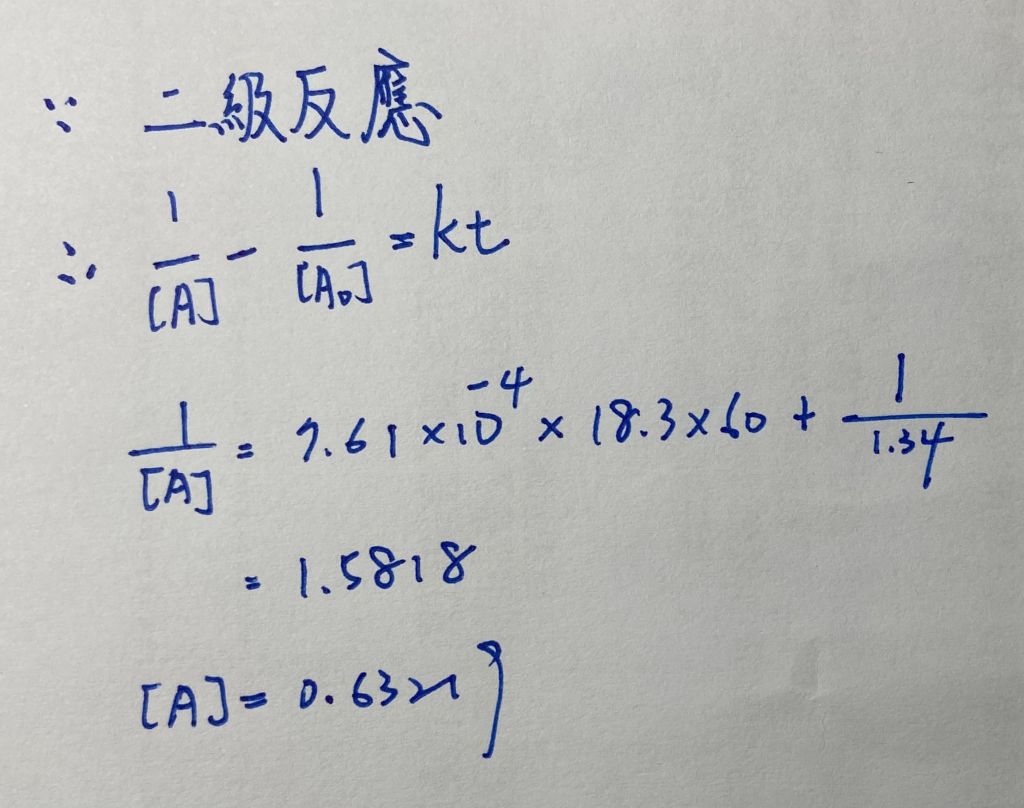 ∵ 二級反應
∴ 1/[A] - 1/[A₀] = kt
1/[A] = 7.61 × 10⁻⁴ × 18.3 × 60 + 1/1.34
= 1.5818
[A] = 0.632